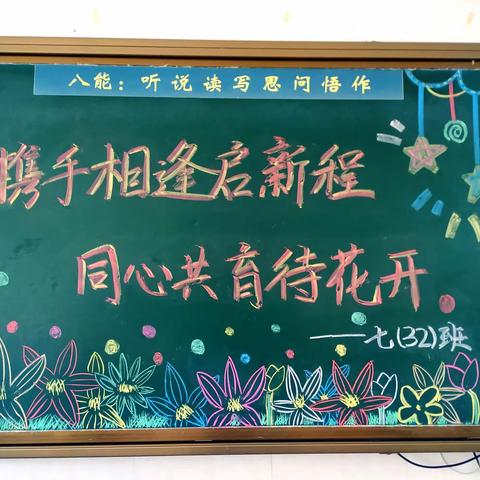 八能：听说读写思问悟作
携手相逢启新程
同心共育待花开
——七(32)班